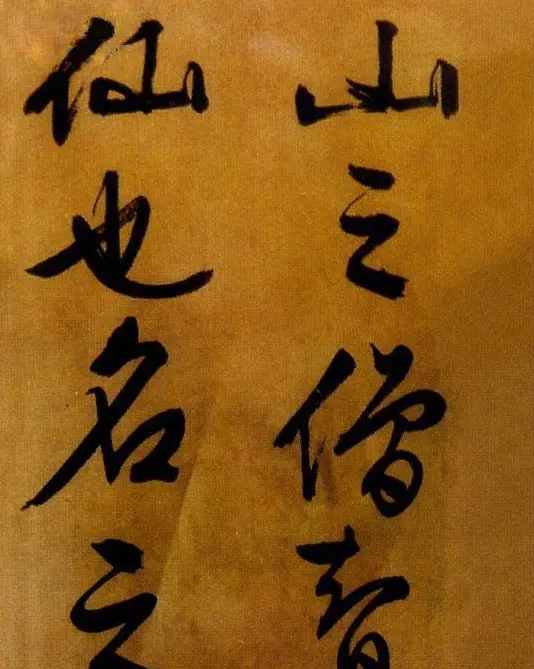 山之僧智
仙也名之